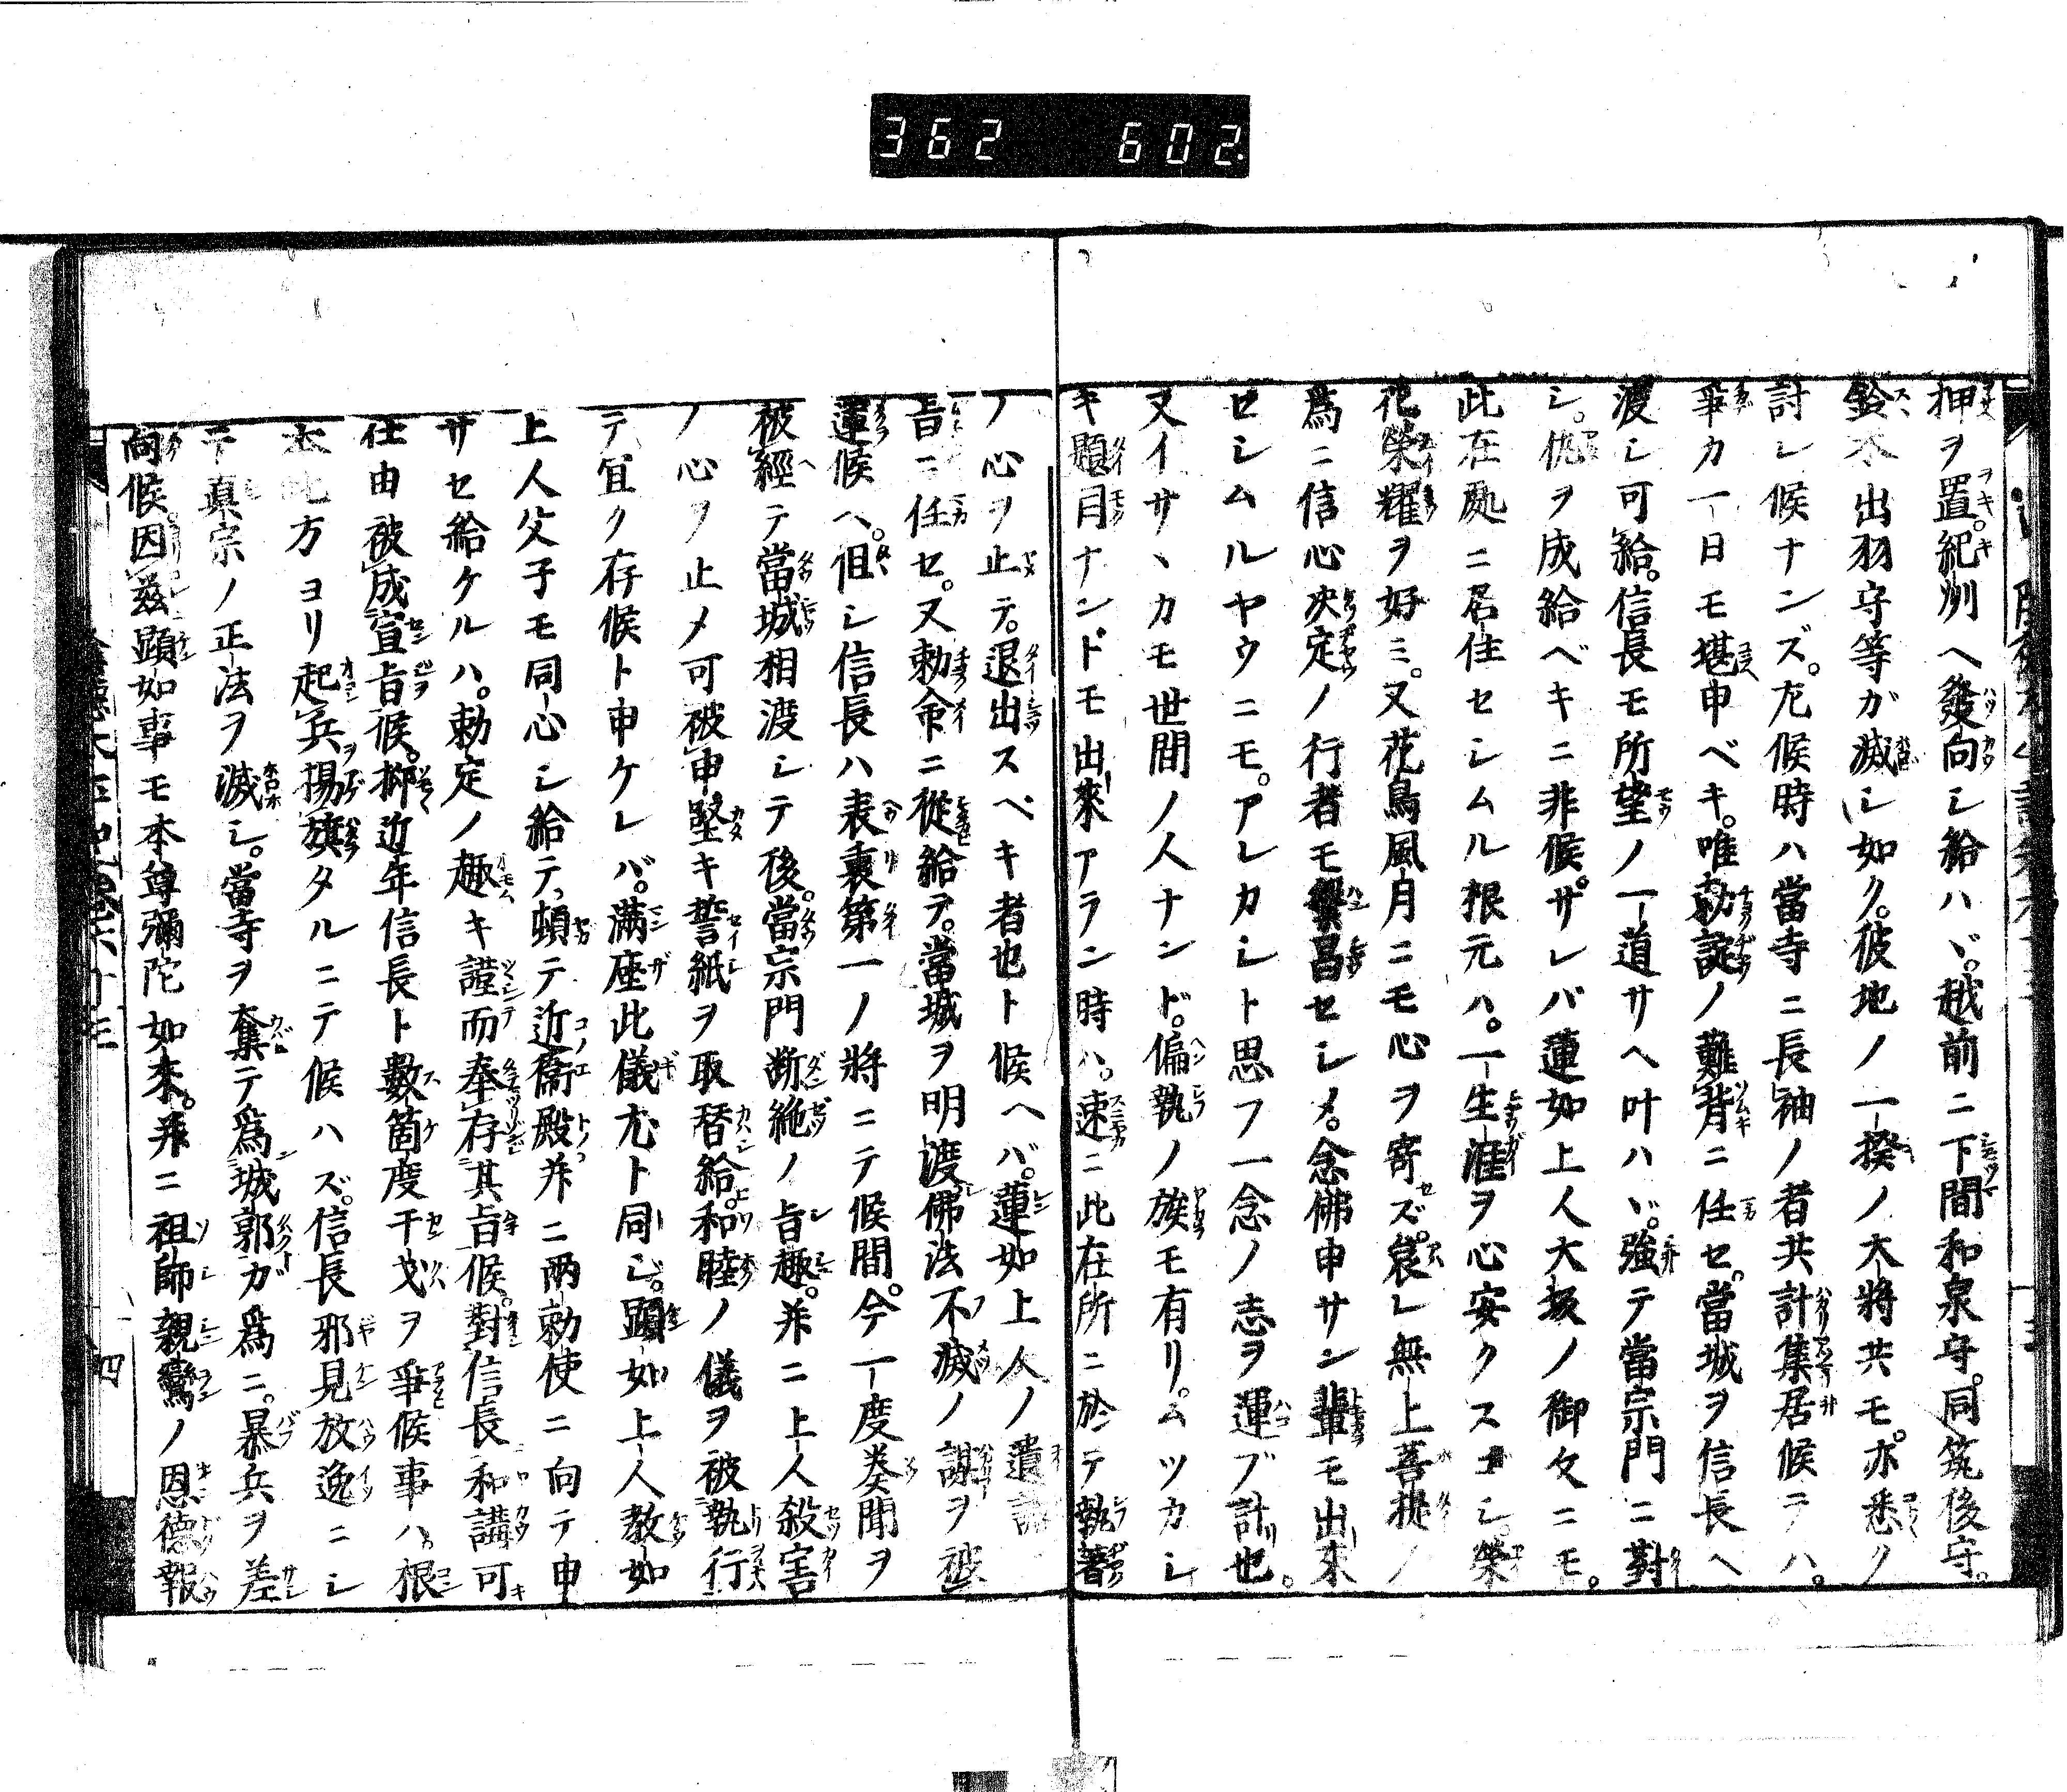 362 602.
押ヲ置。紀州ヘ發向シ給ハヾ。越前ニ下間和泉守。同筑後守。
鈴木出羽守等ガ滅シ如ク。彼地ノ一揆ノ大將共モ。亦悉ク
討レ候ナンズ。尤候時ハ當寺ニ長袖ノ者共計集居候テハ。
爭カ一日モ堪申ベキ。唯勅諚ノ難背ニ任セ。當城ヲ信長ヘ
渡シ可給。信長モ所望ノ一道サヘ叶ハヾ。強テ當宗門ニ對
シ。仇ヲ成給ベキニ非候。サレバ蓮如上人大坂ノ御文ニモ。
此在處ニ居住セシムル根元ハ。一生涯ヲ心安クスコシ。榮
花榮耀ヲ好ミ。又花鳥風月ニモ心ヲ寄ズ。哀レ無上菩提ノ
爲ニ信心决定ノ行者モ繁昌セシメ。念佛申サン輩モ出來
セシムルヤウニモ。アレカシト思フ一念ノ志ヲ運ブ計也。
又イサヽカモ世間ノ人ナンド。偏執ノ族モ有リ。ムツカシ
キ題目ナンドモ出來アラン時ハ。速ニ此在所ニ於テ執著
ノ心ヲ止テ。退出スベキ者也ト候ヘバ。蓮如上人ノ遺誡
旨ニ任セ。又勅命ニ從給テ。當城ヲ明渡佛法不滅ノ謀ヲ被
運候ヘ。但シ信長ハ表裏第一ノ將ニテ候間。今一度奏聞ヲ
被經テ當城相渡シテ後。當宗門断絶ノ旨趣。并ニ上人殺害
ノ心ヲ止メ可被申堅キ誓紙ヲ取替給。和睦ノ儀ヲ被執行
テ宜ク存候ト申ケレバ。滿座此儀尤ト同ジ。顕如上人教如
上人父子モ同心シ給テ、頓テ近衞殿并ニ兩勅使ニ向テ申
サセ給ケルハ。勅定ノ趣キ謹而奉存其旨候。對信長和講可
仕由被成宣旨候。抑近年信長ト數箇度干戈ヲ爭候事ハ。根
本此方ヨリ起兵揚旗タルニテ候ハズ。信長邪見放逸ニシ
テ真宗ノ正法ヲ滅シ。當寺ヲ奪テ爲城郭ガ爲ニ。暴兵ヲ差
向候因茲顕如事モ本尊彌陀如來。并ニ祖師親鸞ノ恩德報
四